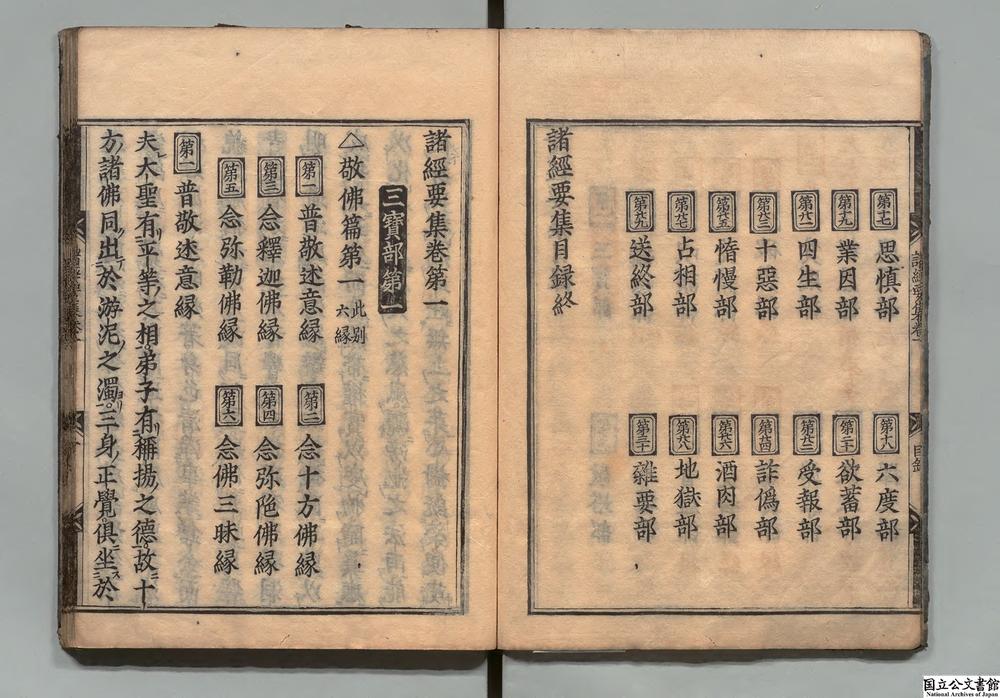 第十七 思慎部
第十八 六度部
第十九 業因部
第二十 欲蓄部
第廿一 四生部
第廿二 受報部
第廿三 十惡部
第廿四 詐僞部
第廿五 惰慢部
第廿六 酒肉部
第廿七 占相部
第廿八 地獄部
第廿九 送終部
第三十 雜要部
諸經要集目録終
諸經要集巻第一
三寶部第一
△敬佛篇第一 此别六縁
第一 普敬述意縁
第二 念十方佛縁
第三 念釋迦佛縁
第四 念弥陁佛縁
第五 念弥勒佛縁
第六 念佛三昧縁
第一 普敬述意縁
夫大聖有平等之相弟子有稱揚之德故十
方諸佛同出於淤泥之濁三身正覺俱坐於
国立公文書館
National Archives of Japan